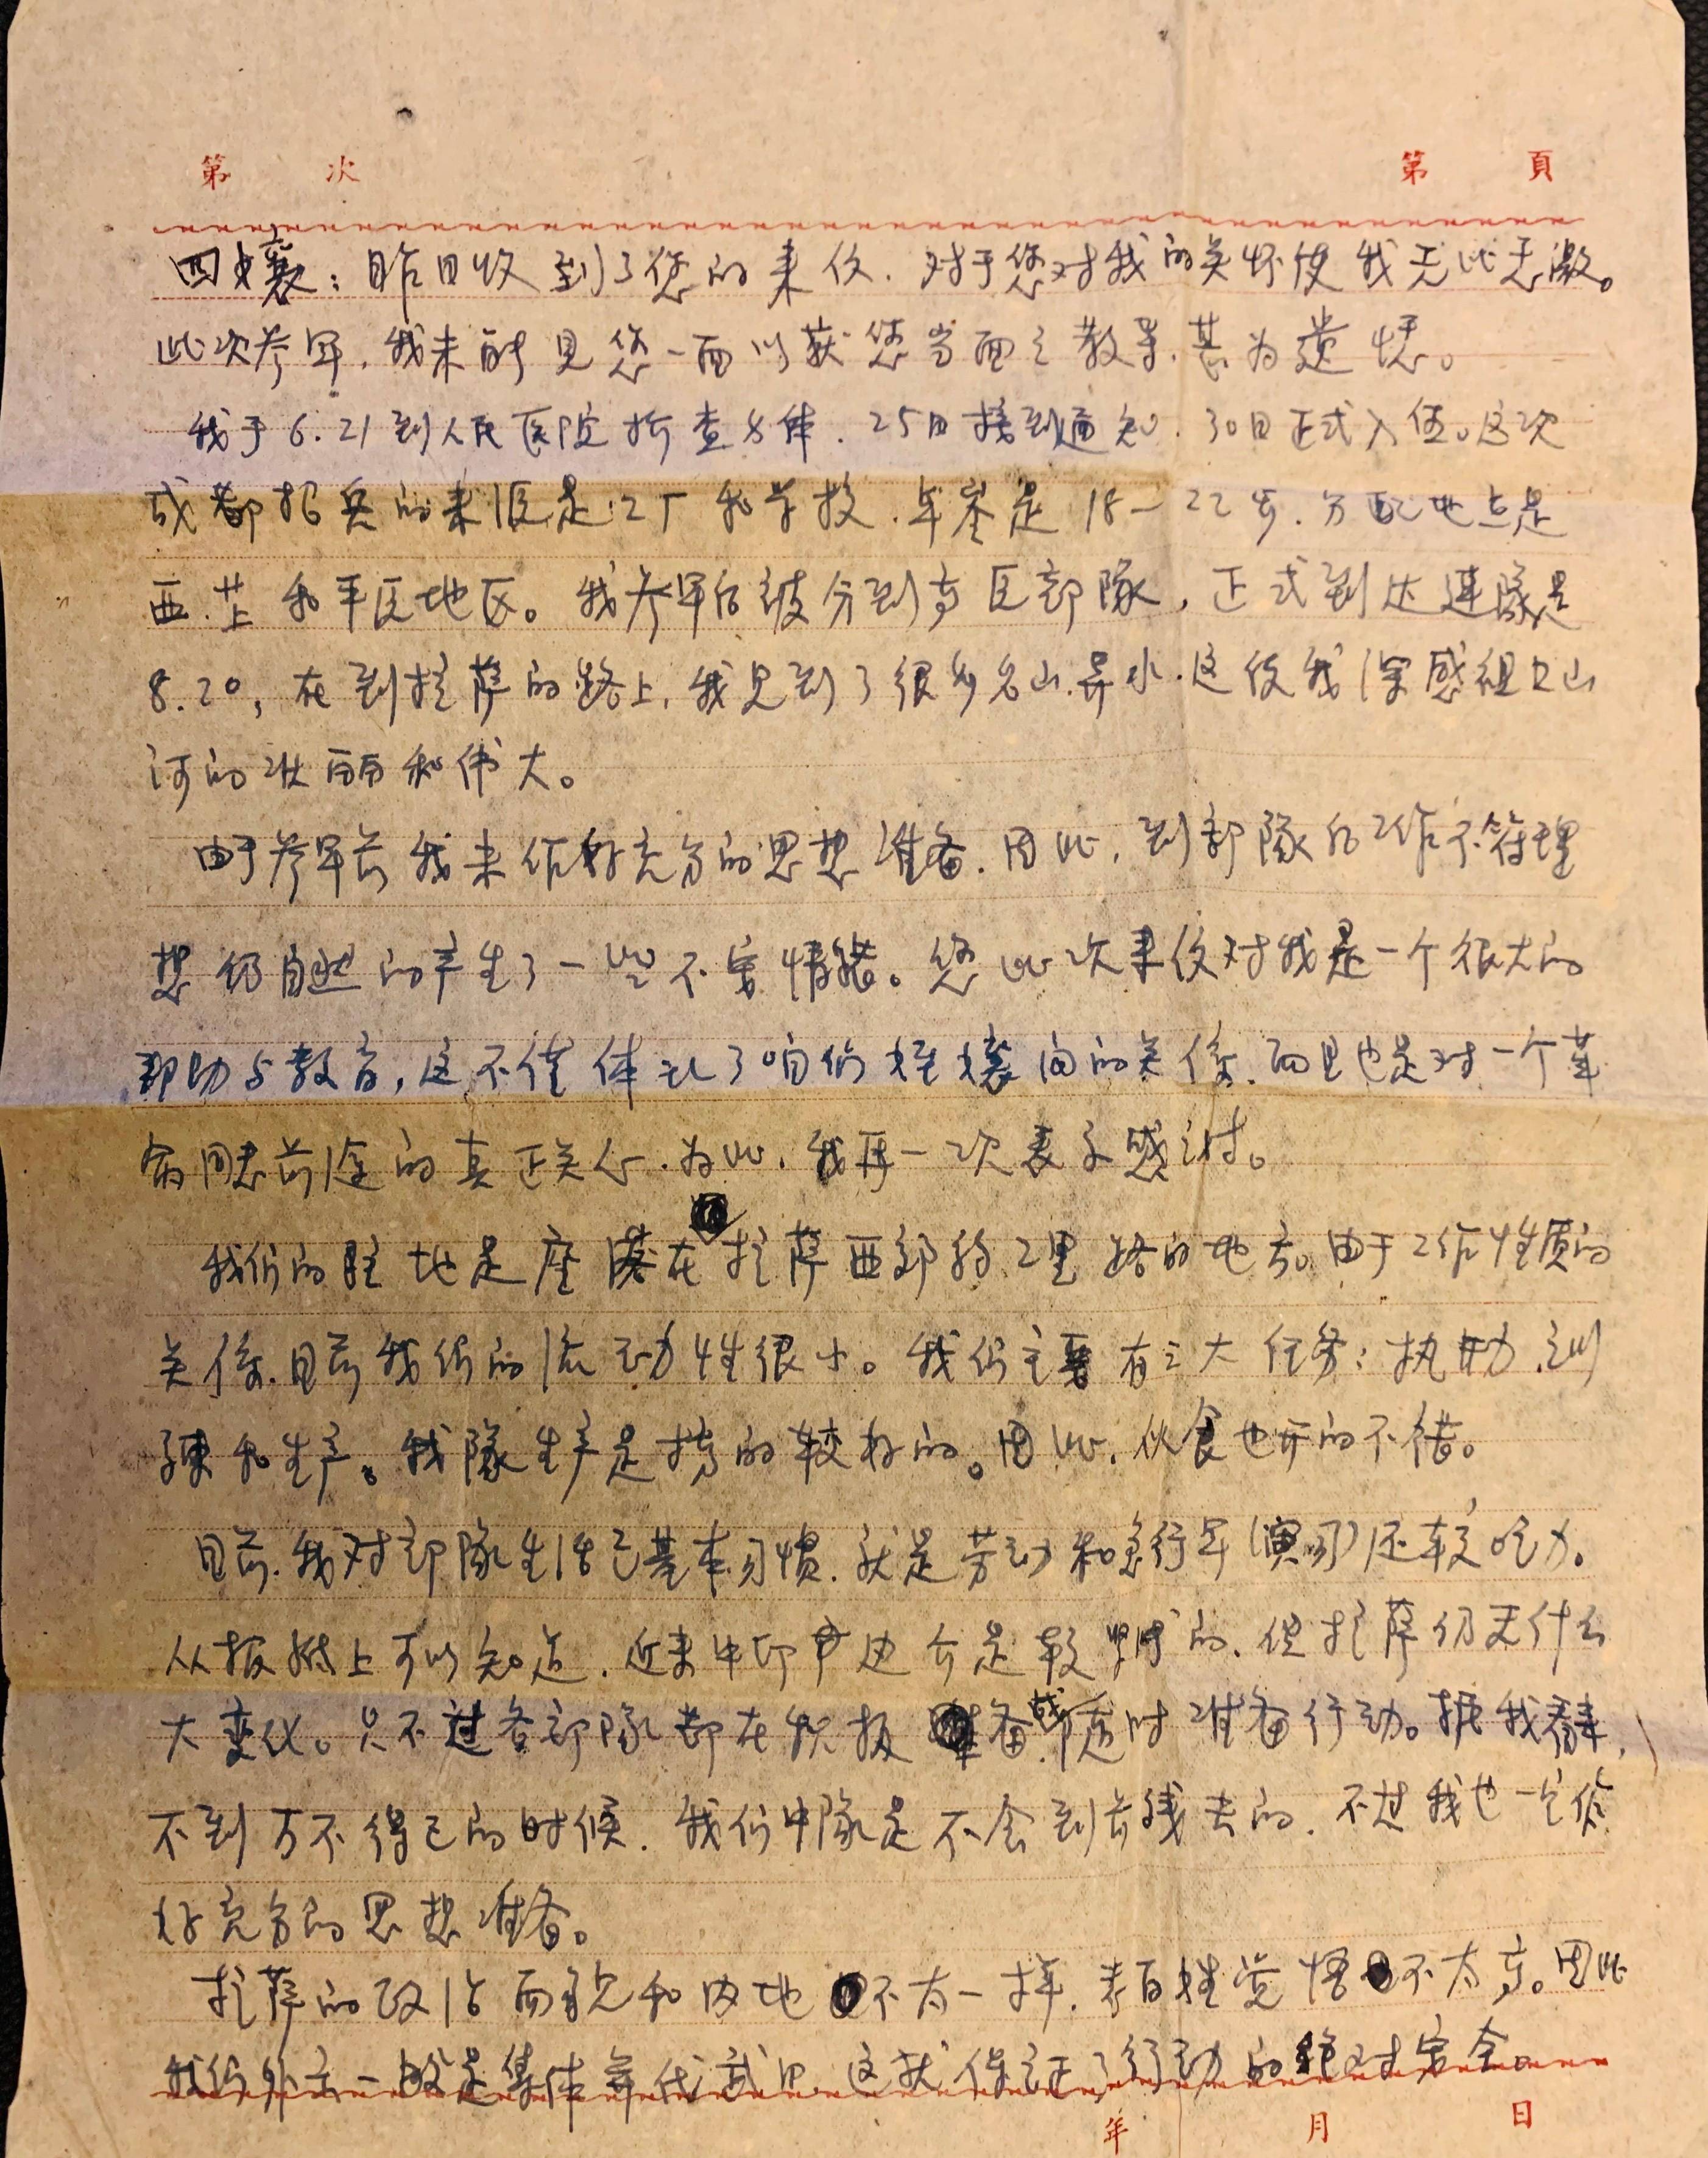 第 次 第 頁
四孃：昨日收到了您的来信．对于您对我的关怀使我无比感激。
此次参军．我未能见您一面以获您当面之教导．甚为遗憾。
我于6.21到人民医院检查身体．25日接到通知．30日正式入伍。这次
成都招兵的来源是工厂和学校．年龄是18—22岁．分配地点是
西藏和军区地区。我参军后被分到军区部隊，正式到达連隊是
8.20，在到拉萨的路上．我见到了很多名山异水．这使我深感祖国山
河的壮丽和伟大。
由于参军前我未作好充分的思想准备．因此．到部隊后工作不符理
想仍自然的产生了一些不安情绪。您此次来信对我是一个很大的
帮助与教育，这不僅体现了咱们姪孃间的关係．而且也是对一个革
命同志前途的真正关心．为此．我再一次表示感谢。
我们的駐地是座落在拉萨西郊約2里路的地方。由于工作性质的
关係．目前我们的流动性很小。我们主要有三大任务：执勤．训
練和生产。我隊生产是搞的较好的。因此．伙食也开的不错。
目前．我对部隊生活已基本习惯．就是劳动和急行军(演习)还较吃力。
从报紙上可以知道．近来中印边界是较紧的．但拉萨仍无什么
大变化。只不过各部隊都在积极备战．随时准备行动。据我看来，
不到万不得已的时候．我们中隊是不会到前线去的．不过我也一定作
好充分的思想准备。
拉萨的政治面貌和内地不太一样．老百姓觉悟不太高。因此
我们外出一般是集体并代武器．这就保证了行动的絕对安全。
年 月 日